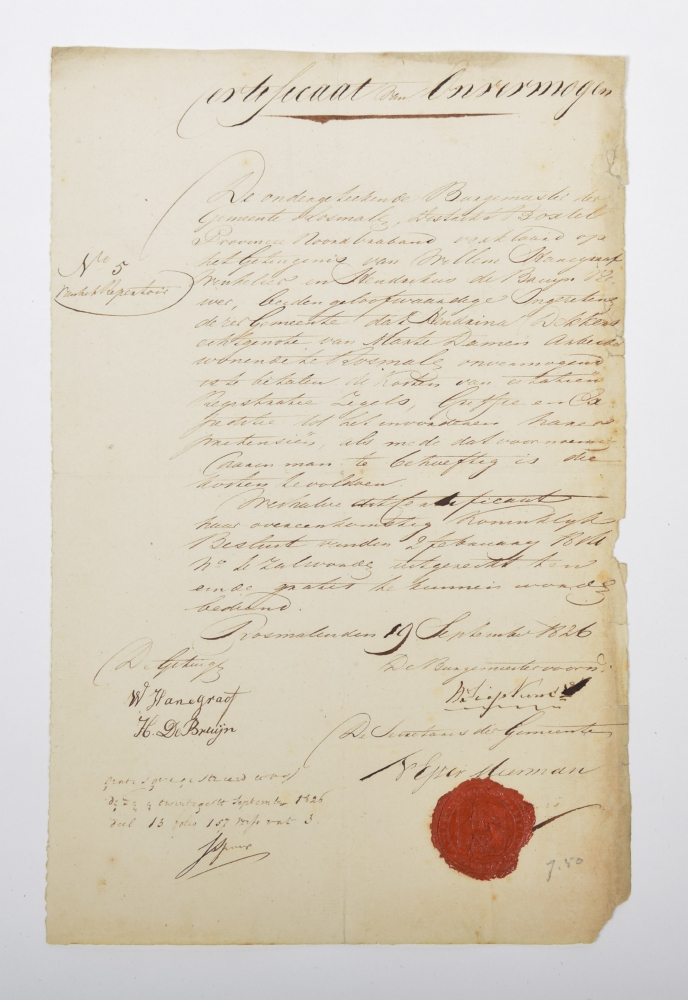 Certificaat van Onvermogen
De ondergeteekende Burgemeester der
Gemeente Rosmalen, District Boxtel
Provincie Noordbraband verklaard op
het Getuigenis van Willem Hanegraaf
Winkelier en Henderikus de Bruijn
beiden geloofwaardige Ingezetene
dezer Gemeente dat Hendrina Dekkers
echtgenote van Marte Damen Arbeider
wonende te Rosmalen onvermogend
is te betalen de Kosten van citatien
Registratie Zegels, Griffie en Ex
peditie tot het invorderen harer
pretensien, als mede dat voornoemde
haaren man te behoeftig is die
kosten te voldoen
Werhalve dit Certificaat
haar overeenkomstig Koninklyk
Besluit van den 2 february 1814
No uitgereikt ten
einde gratis te kunnen worden
bediend.
Rosmalen den 19 September 1826
No 5
De Getuige
W Hanegraaf
H. De Bruijn
De Burgemeester voorn.
De Secretaris der Gemeente
September 1826
deel 13 folio 157 vak 3.
7.50